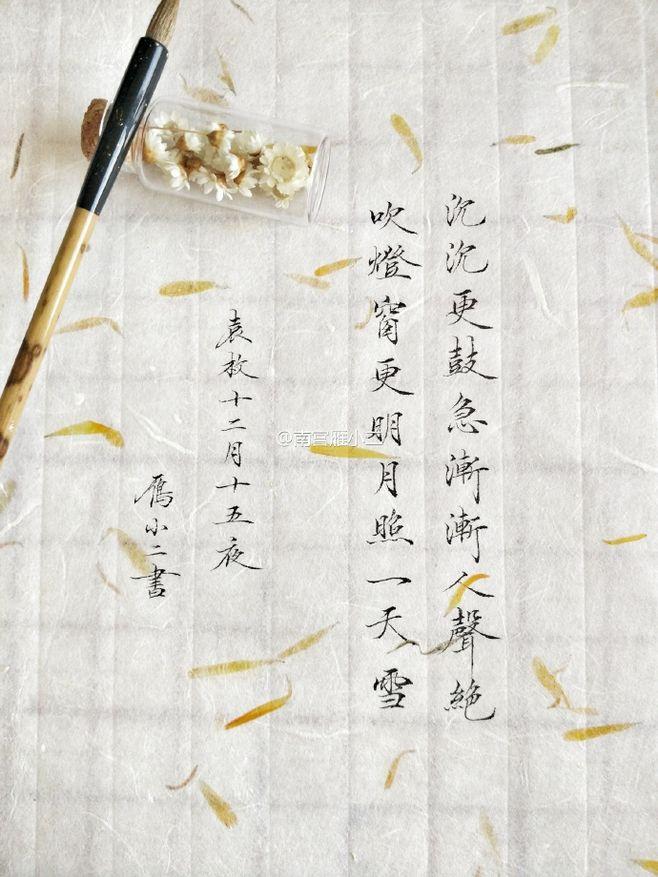 沉沉更鼓急漸漸人聲絶
吹燈窗更明月照一天雪
袁枚十二月十五夜
雁小二書
@南宫雁小二